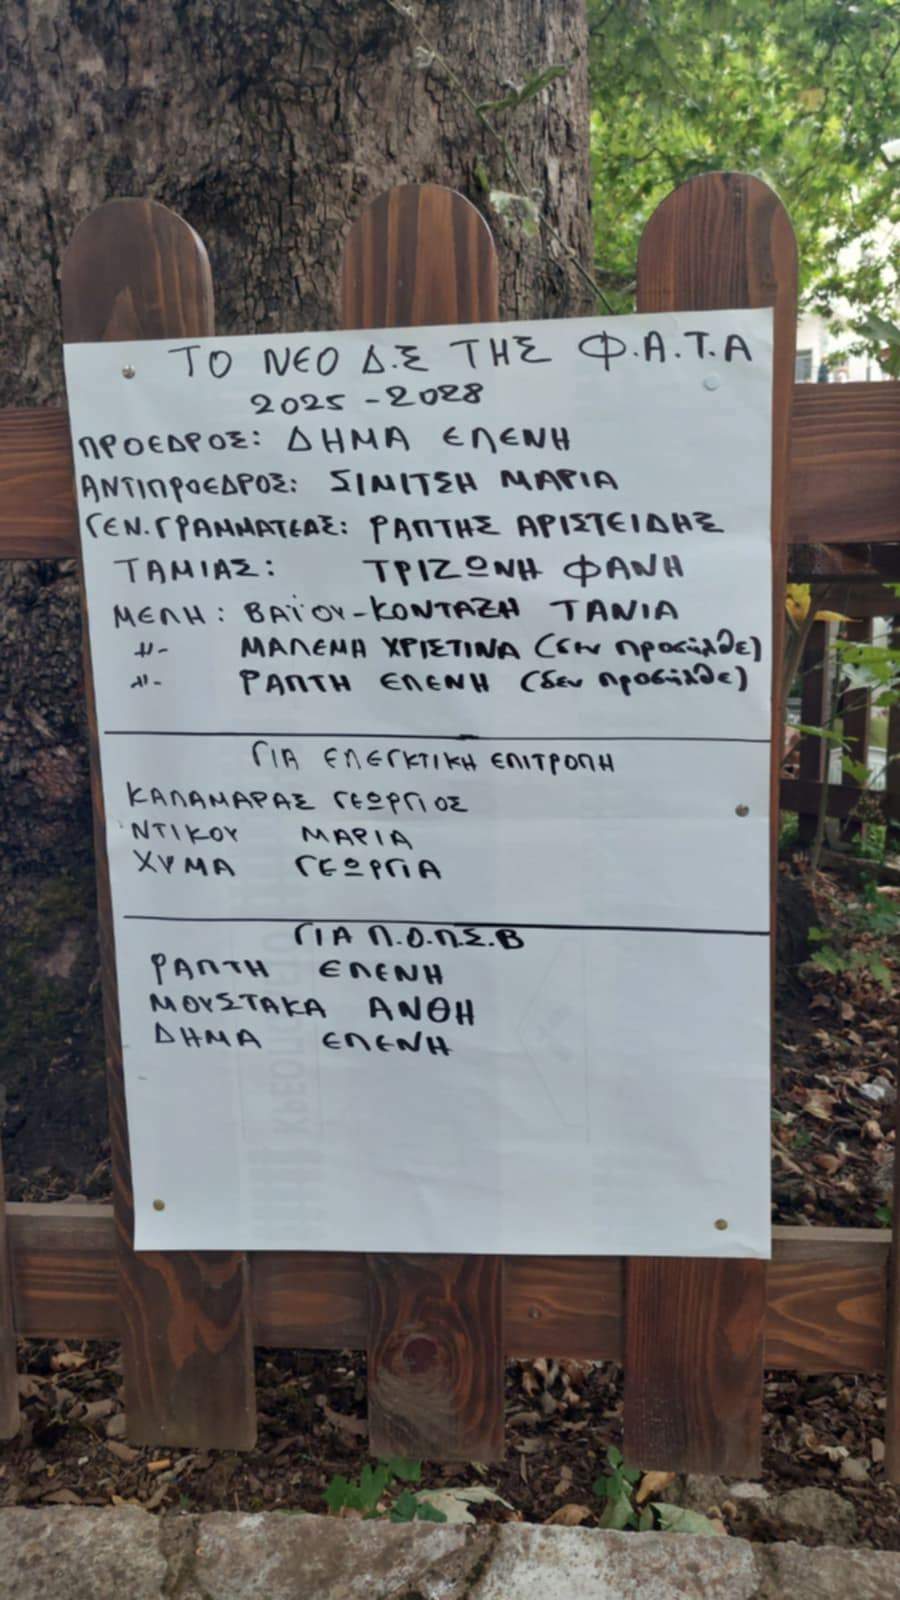 ΤΟ ΝΕΟ Δ.Σ ΤΗΣ Φ.Α.Τ.Α
2025-2028
ΠΡΟΕΔΡΟΣ: ΔΗΜΑ ΕΛΕΝΗ
ΑΝΤΙΠΡΟΕΔΡΟΣ: ΣΙΝΙΤΣΗ ΜΑΡΙΑ
ΓΕΝ.ΓΡΑΜΜΑΤΕΑΣ: ΡΑΠΤΗΣ ΑΡΙΣΤΕΙΔΗΣ
ΤΑΜΙΑΣ: ΤΡΙΖΩΝΗ ΦΑΝΗ
ΜΕΛΗ: ΒΑΪΟΥ-ΚΟΝΤΑΞΗ ΤΑΝΙΑ
-//- ΜΑΛΕΜΗ ΧΡΙΣΤΙΝΑ (δεν προσήλθε)
-//- ΡΑΠΤΗ ΕΛΕΝΗ (δεν προσήλθε)
ΓΙΑ ΕΛΕΓΚΤΙΚΗ ΕΠΙΤΡΟΠΗ
ΚΑΛΑΜΑΡΑΣ ΓΕΩΡΓΙΟΣ
ΝΤΙΚΟΥ ΜΑΡΙΑ
ΧΥΜΑ ΓΕΩΡΓΙΑ
ΓΙΑ Π.Ο.Π.Σ.Β
ΡΑΠΤΗ ΕΛΕΝΗ
ΜΟΥΣΤΑΚΑ ΑΝΘΗ
ΔΗΜΑ ΕΛΕΝΗ